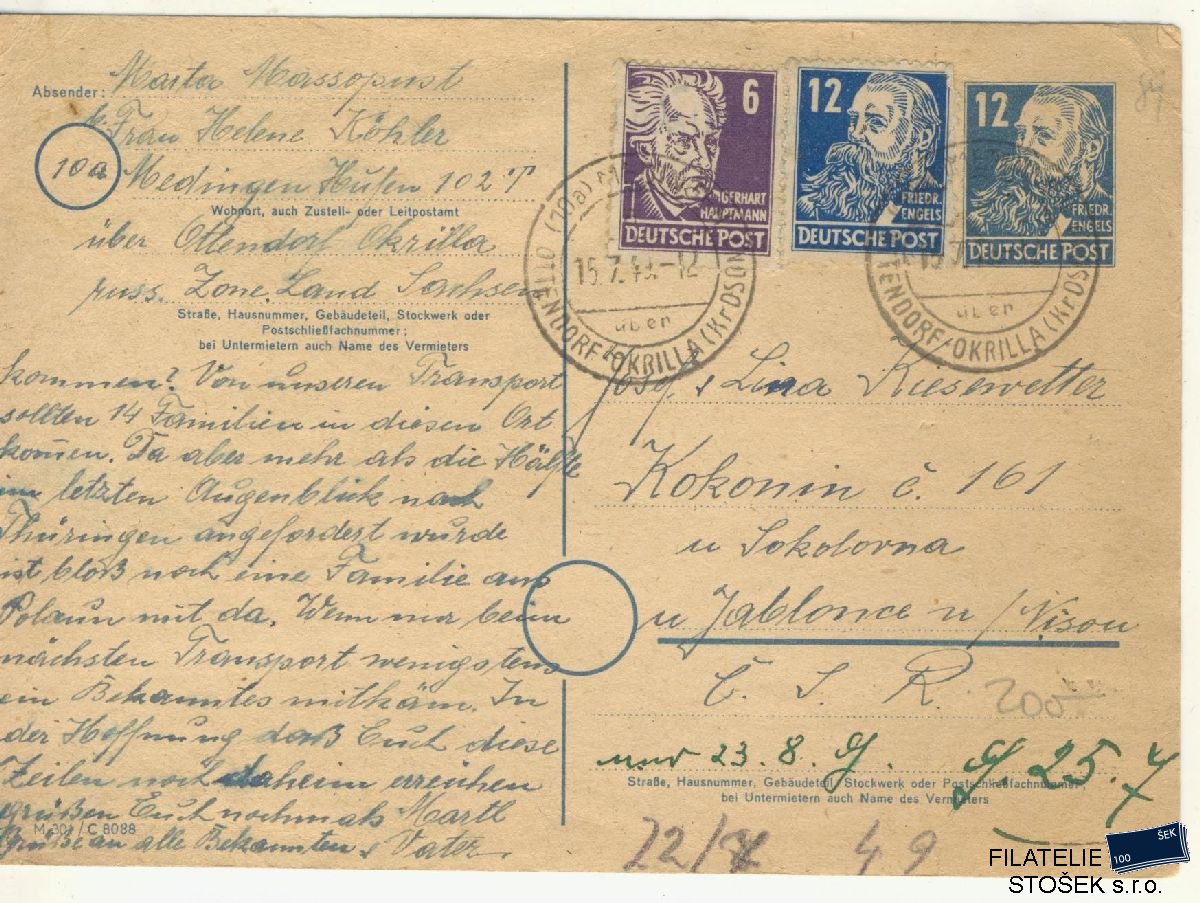 Absender: Marta Massopust
Frau Helene Köhler
10a Medingen Hufen 102 T
Wohnort, auch Zustell- oder Leitpostamt
über Ottendorf Okrilla
russ. Zone. Land Sachsen
Straße, Hausnummer, Gebäudeteil, Stockwerk oder
Postschließfachnummer;
bei Untermietern auch Name des Vermieters
kommen? Von unseren Transport
sollten 14 Familien in diesen Ort
kom̄en. Da aber mehr als die Hälfte
im letzten Augenblick nach
Thüringen angefordert wurde
ist bloß noch eine Familie aus
Polaun mit da. Wenn nur beim
nächsten Transport wenigstens
ein Bekanntes mitkäm. In
der Hoffnung daß Euch diese
Zeilen noch daheim erreichen
grüßen Euch nochmals Martl
Grüße an alle Bekannten u Vater
M 301/C 8088
6
GERHART
HAUPTMANN
DEUTSCHE POST
12
FRIEDR.
ENGELS
DEUTSCHE POST
12
FRIEDR.
ENGELS
DEUTSCHE POST
(10a)
OTTENDORF-OKRILLA (KrDSDN)
15.7.49.-12
über
TENDORF-OKRILLA (KrDSDN)
15.7.
über
Josef u Lina Kiesewetter
Kokonin č. 161
u Sokolovna
u Jablonce n/Nisou
Č. S. R.
200.-
23.8. G. 25.7
Straße, Hausnummer, Gebäudeteil, Stockwerk oder Postschließfachnummer
bei Untermietern auch Name des Vermieters
22/7 49
FILATELIE
STOŠEK s.r.o.
100
ŠEK